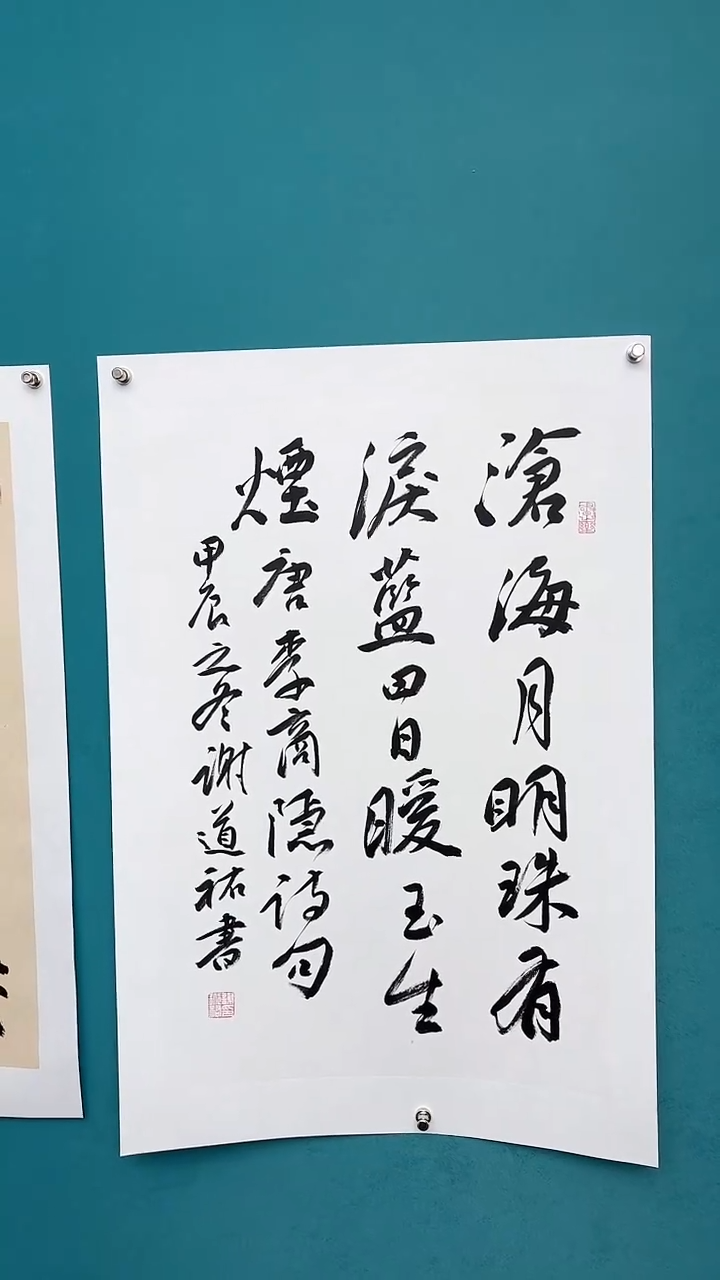 滄海月明珠有
淚藍田日暖玉生
煙唐李商隱詩句
甲辰之冬謝道祐書